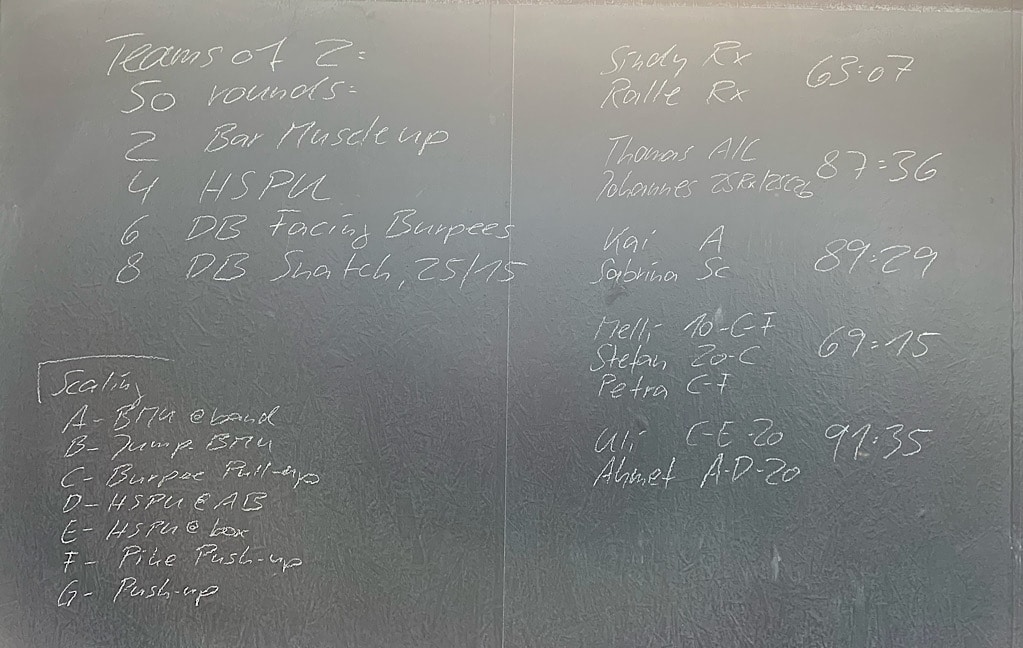 Teams of 2:
50 rounds:
2 Bar Muscle up
4 HSPU
6 DB Facing Burpees
8 DB Snatch, 25/15
Scaling
A - BMU @ band
B - Jump BMU
C - Burpee Pull-up
D - HSPU @ AB
E - HSPU @ box
F - Pike Push-up
G - Push-up
Sindy Rx
Ralle Rx
63:07
Thomas A/C
Johannes
87:36
Kai A
Sabrina Sc
89:29
Melli 10-C-F
Stefan 20-C
Petra C-F
69:15
Uli C-E-20
Ahmet A-D-20
91:35